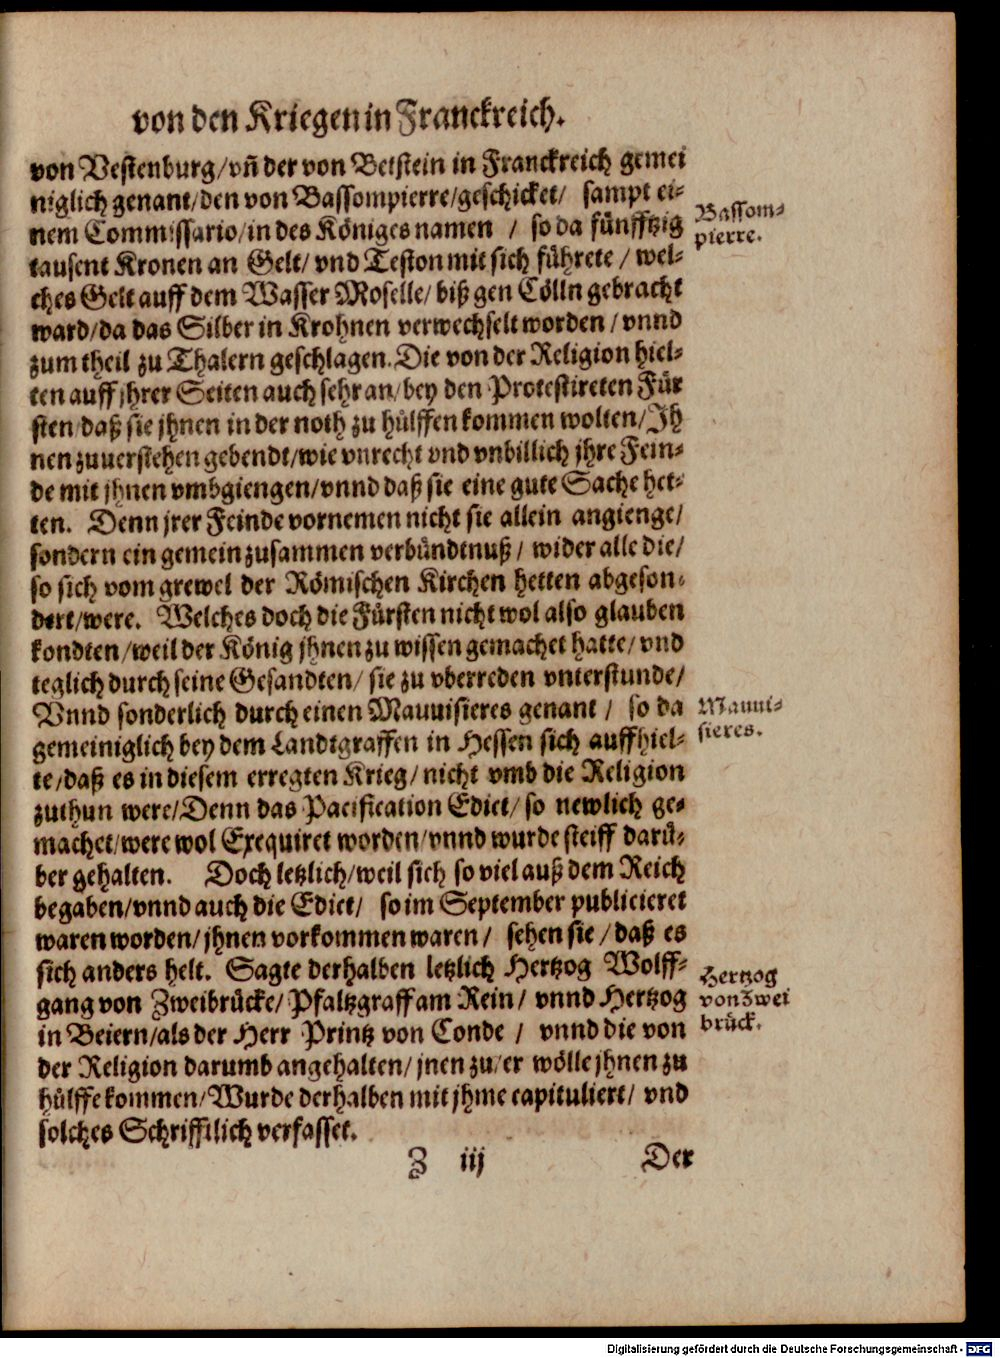 von den Kriegen in Franckreich.
von Vestenburg/vñ der von Betstein in Franckreich gemei
niglich genant/den von Bassompierre/geschicket/ sampt ei-
nem Commissario/in des Königes namen / so da fünfftzig
tausent Kronen an Gelt/ vnd Teston mit sich führete / wel-
ches Gelt auff dem Wasser Moselle/ biß gen Cölln gebracht
ward/da das Silber in Krohnen verwechselt worden / vnnd
zum theil zu Thalern geschlagen. Die von der Religion hiel-
ten auff jhrer Seiten auch sehr an/bey den Protestireten Für
sten/daß sie jhnen in der noth zu hülffen kommen wolten/Jh
nen zuuerstehen gebendt/wie vnrecht vnd vnbillich jhre Fein-
de mit jhnen vmbgiengen/vnnd daß sie eine gute Sache het-
ten. Denn jrer Feinde vornemen nicht sie allein angienge/
sondern ein gemein zusammen verbündtnuß / wider alle die/
so sich vom grewel der Römischen Kirchen hetten abgeson-
dert/were. Welches doch die Fürsten nicht wol also glauben
kondten/weil der König jhnen zu wissen gemachet hatte/ vnd
teglich durch seine Gesandten/ sie zu vberreden vnterstunde/
Vnnd sonderlich durch einen Mauuisieres genant / so da
gemeiniglich bey dem Landtgraffen in Hessen sich auffhiel-
te/daß es in diesem erregten Krieg/ nicht vmb die Religion
zuthun were/Denn das Pacification Edict/ so newlich ge-
machet/were wol Exequiret worden/vnnd wurde steiff darü-
ber gehalten. Doch letzlich/weil sich so viel auß dem Reich
begaben/vnnd auch die Edict/ so im September publicieret
waren worden/ jhnen vorkommen waren / sehen sie / daß es
sich anders helt. Sagte derhalben letzlich Hertzog Wolff-
gang von Zweibrücke/ Pfaltzgraff am Rein/ vnnd Hertzog
in Beiern/als der Herr Printz von Conde / vnnd die von
der Religion darumb angehalten/ jnen zu/er wölle jhnen zu
hülffe kommen/Wurde derhalben mit jhme capituliert/ vnd
solches Schrifftlich verfasset.
Z iij Der
Bassom-
pierre.
Mauui-
sieres.
Hertzog
von Zwei
brück.
Digitalisierung gefördert durch die Deutsche Forschungsgemeinschaft - DFG